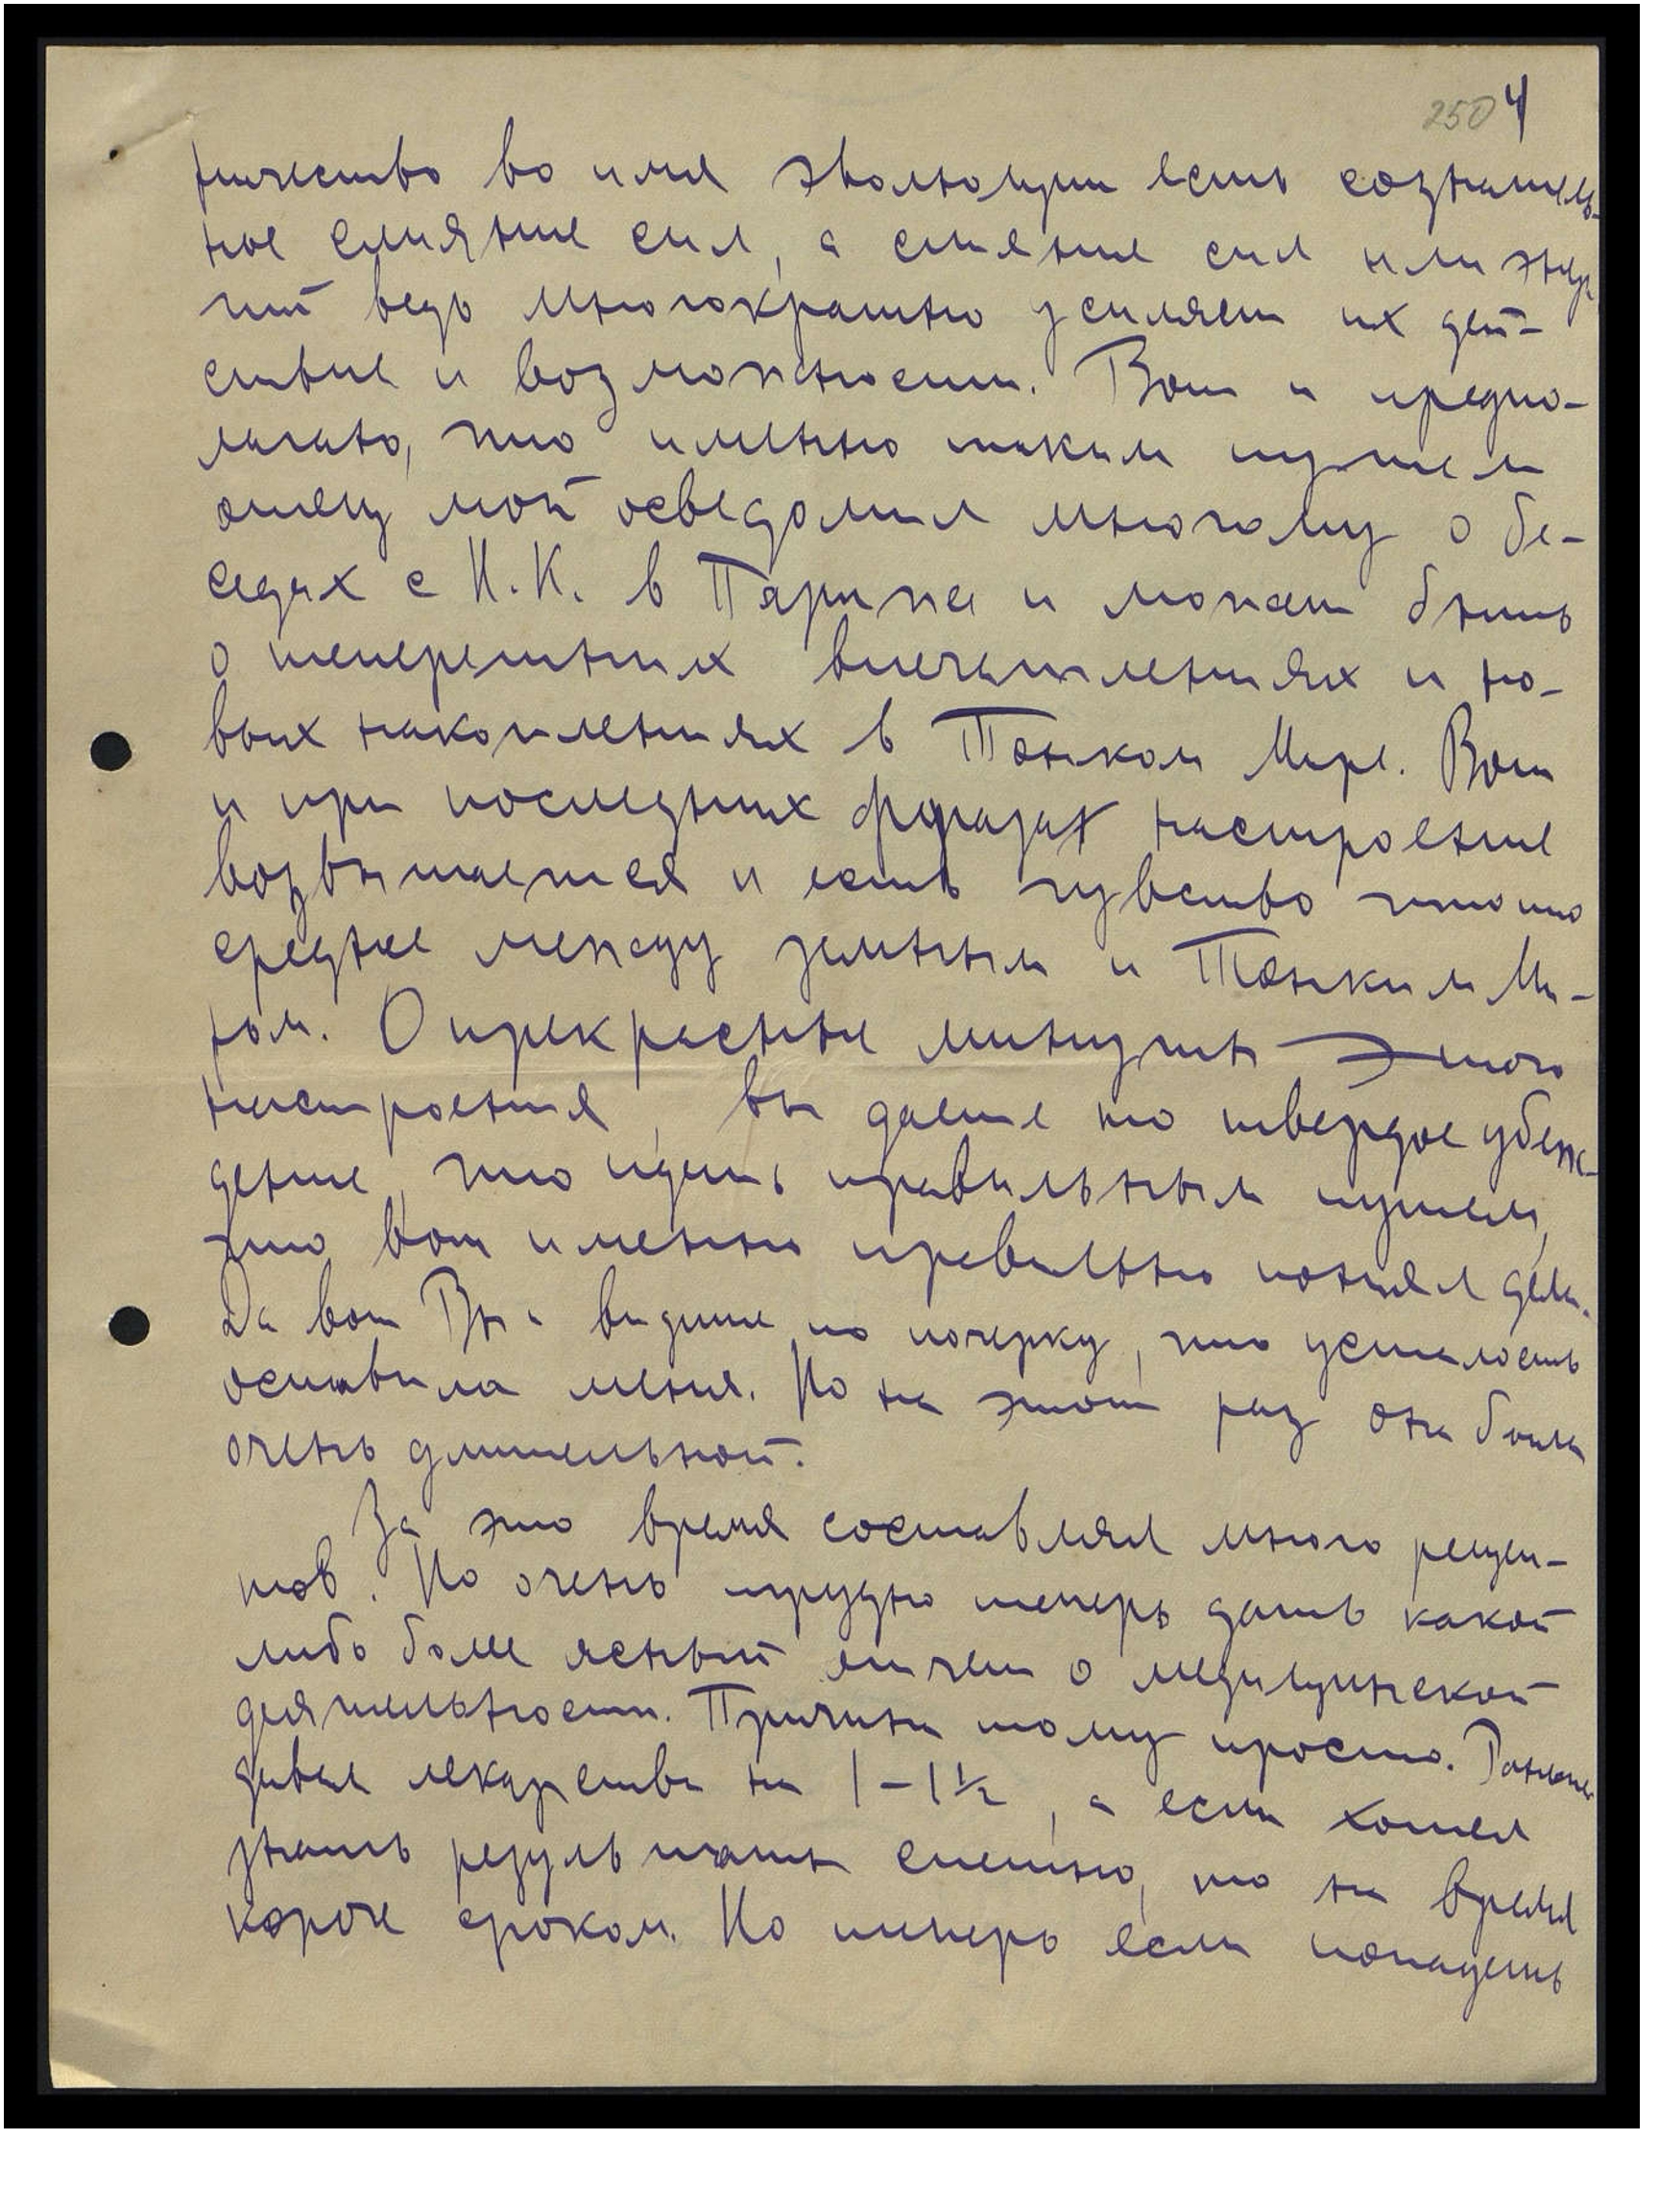 250 4
ничество во имя эволюции есть сознатель-
ное слияние сил, а слияние сил или энер
гий ведь многократно усиляет их дей-
ствие и возможности. Вот и предпо-
лагаю, что именно таким путем
отец мой осведомил многому о бе-
седах с Н.К. в Париже и может быть
о теперешних впечатлениях и но-
вых накоплениях в Тонком Мире. Вот
и при последних фразах настроение
возвышается и есть чувство что-то
среднее между земным и Тонким Ми-
ром. О прекрасные минуты этого
настроения, вы даете то твердое убеж-
дение, что идешь правильным путем,
что вот именно правильно понял дело.
Да вот Вы и видите по почерку, что усталость
оставила меня. Но на этот раз она была
очень длительной.
За это время составлял много рецеп-
тов. Но очень трудно теперь дать какой
либо более ясный отчет о медицинской
деятельности. Причина тому проста. Раньше
давал лекарства на 1–1½, а если хотел
знать результаты спешно, то на время
короче сроком. Но теперь если попадешь